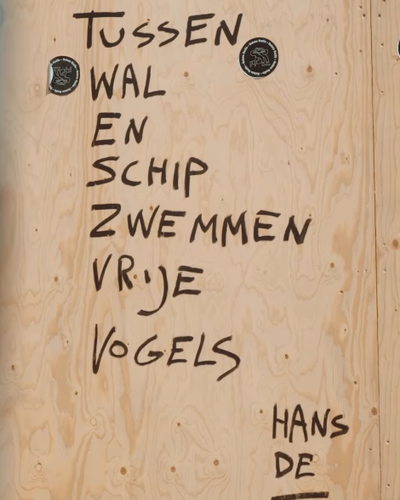 TUSSEN
WAL
EN
SCHIP
ZWEMMEN
VRIJE
VOGELS
HANS
DE